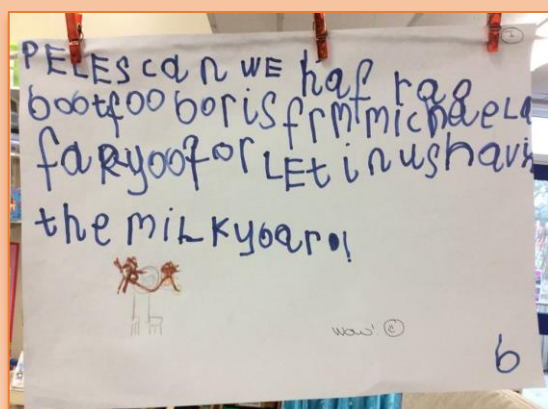 PELES can WE haf rag
bootfoo boris frmmichaeLa
faRyoofor LEt in us havi
the miLKybaro!
wow!
6